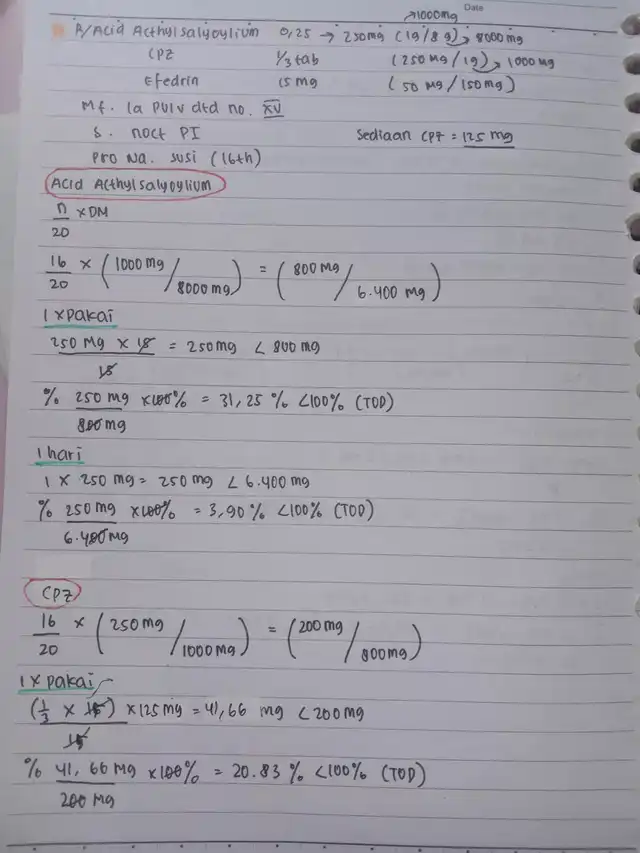 Date
→1000mg
R/Acid Acthylsalyoylium 0,25 → 250mg (1g/8g) 8000mg
CPZ 1/3 tab (250 mg/1g) 1000 mg
Efedrin 15 mg (50 mg/150mg)
Mf. la pulv dtd no. XV
S. noct PI Sediaan CPZ = 125 mg
Pro Na. Susi (16th)
Acid Acthylsalyoylium
n/20 × DM
16/20 × (1000 mg/8000 mg) = (800 mg/6.400 mg)
1 x pakai
250 mg × 15/15 = 250mg < 800 mg
% 250 mg/800 mg ×100% = 31,25 % <100% (TOD)
1 hari
1 × 250 mg = 250 mg < 6.400 mg
% 250 mg/6.400 mg ×100% = 3,90 % <100% (TOD)
CPZ
16/20 × (250 mg/1000 mg) = (200 mg/800 mg)
1 x pakai
(1/3 × 15)/15 × 125 mg = 41,66 mg < 200 mg
% 41,66 mg/200 mg ×100% = 20.83 % <100% (TOD)